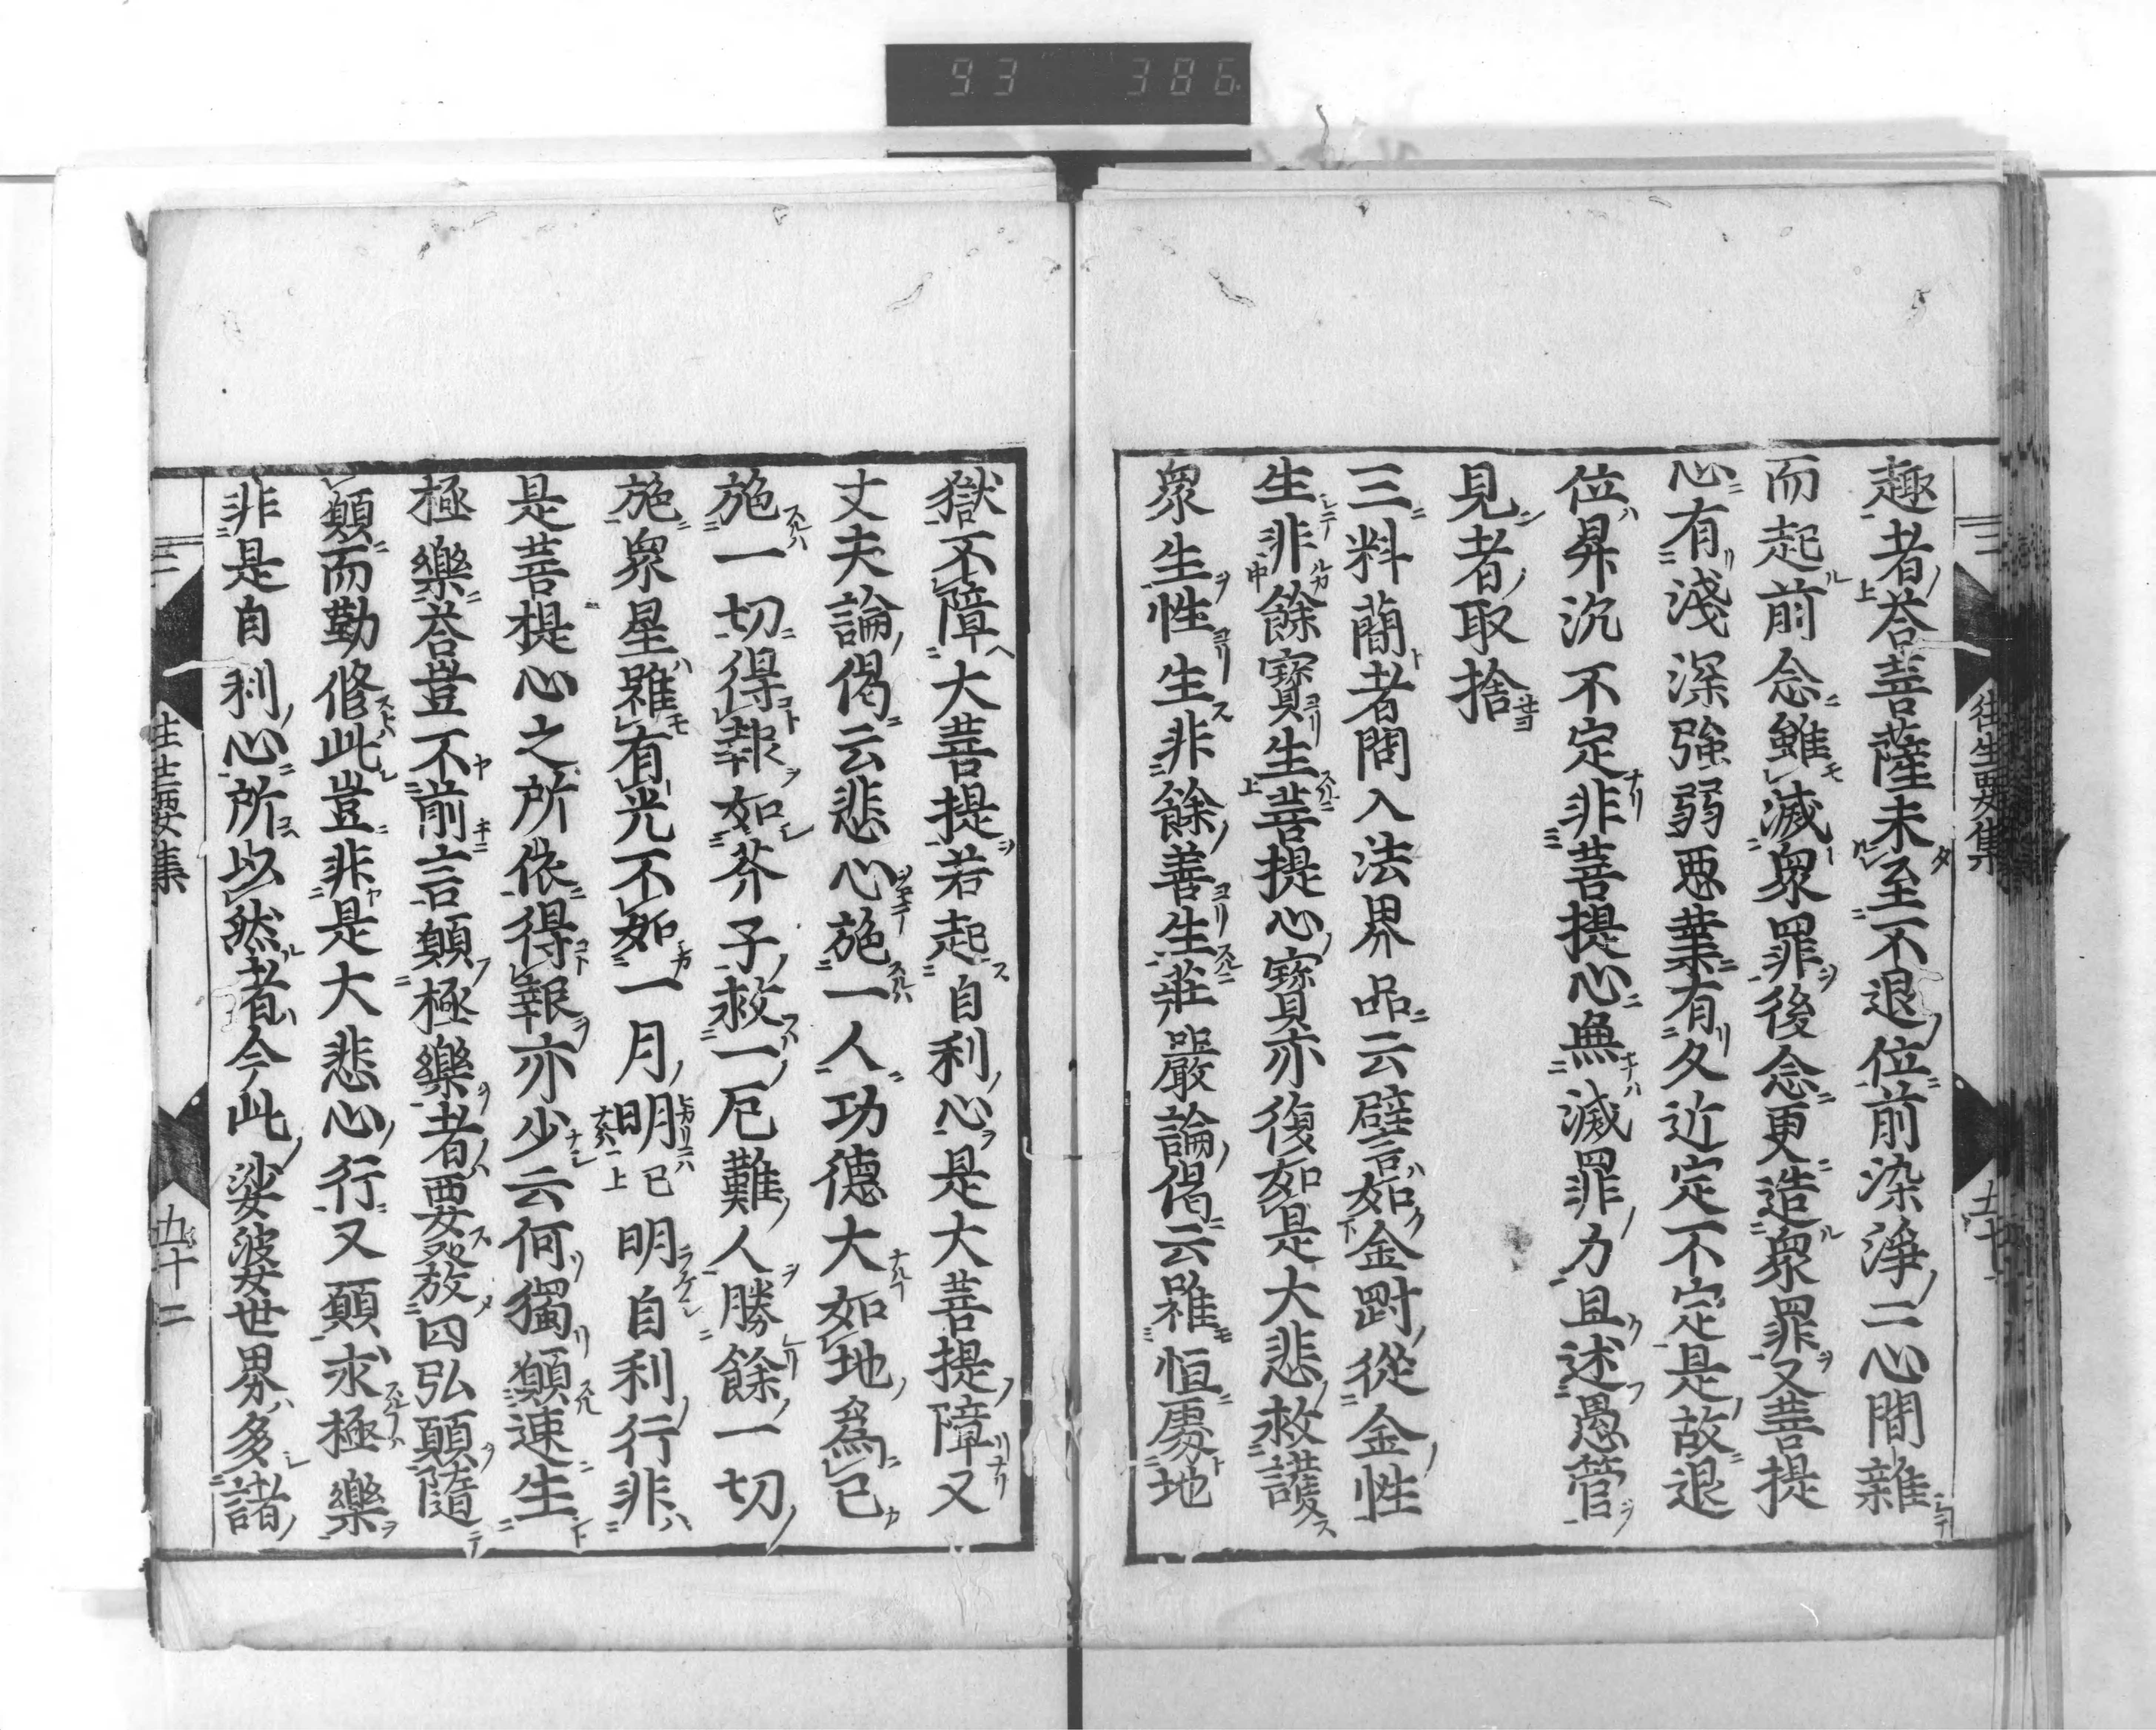 93 386
往生要集
趣者荅菩薩未至不退位前染淨二心間雜
而起前念雖滅衆罪後念更造衆罪又菩提
心有淺深強弱惡業有久近定不定是故退
位昇沉不定非菩提心無滅罪力且述愚管
見者取捨
三料蕳者問入法界品云譬如金剛從金性
生非餘寶生菩提心寶亦復如是大悲救護
衆生性生非餘善生莊嚴論偈云雖恒處地
獄不障大菩提若起自利心是大菩提障又
丈夫論偈云悲心施一人功德大如地爲己
施一切得報如芥子救一厄難人勝餘一切
施衆星雖有光不如一月明已上明自利行非
是菩提心之所依得報亦少云何獨願速生
極樂荅豈不前言願極樂者要發四弘願隨
願而勤修此豈非是大悲心行又願求極樂
非是自利心所以然者今此娑婆世界多諸
三
往生要集
五十二